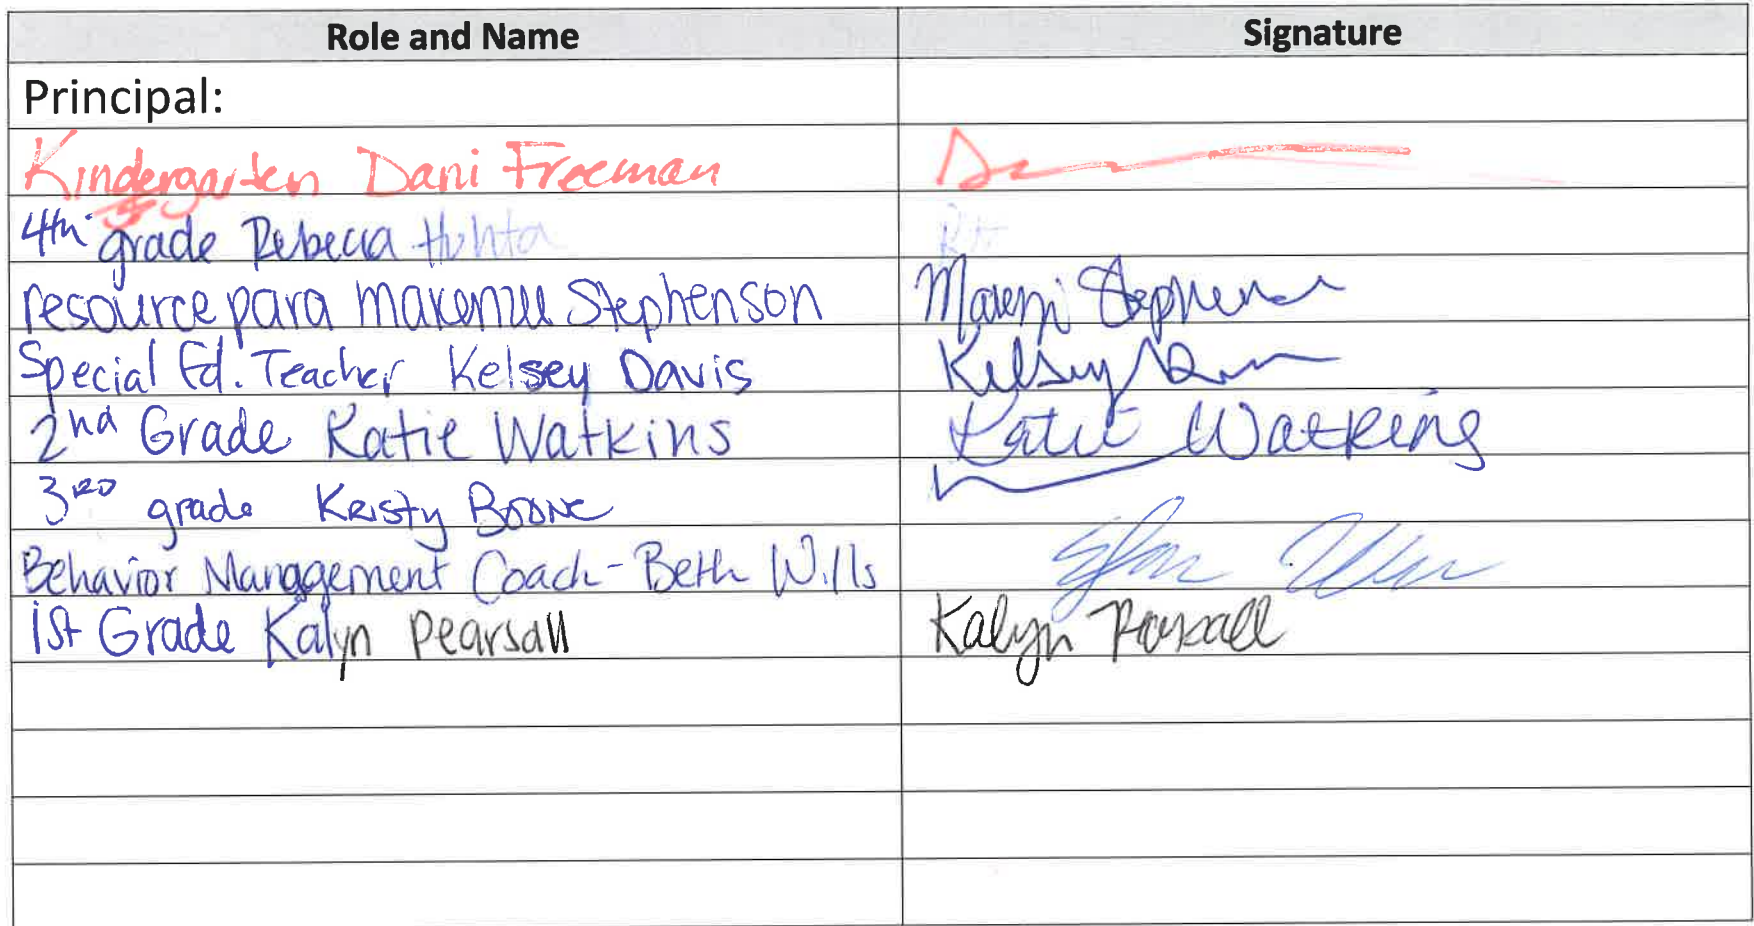 Role and Name Signature
Principal:
Kindergarten Dani Freeman
4th grade Rebecca Huhta
resource para Makenzie Stephenson Stephenson
Special Ed. Teacher Kelsey Davis Kelsey
2nd Grade Katie Watkins Katie Watkins
3RD grade Kristy Boone
Behavior Management Coach - Beth Wills
1st Grade Kalyn Pearsall Kalyn Pearsall